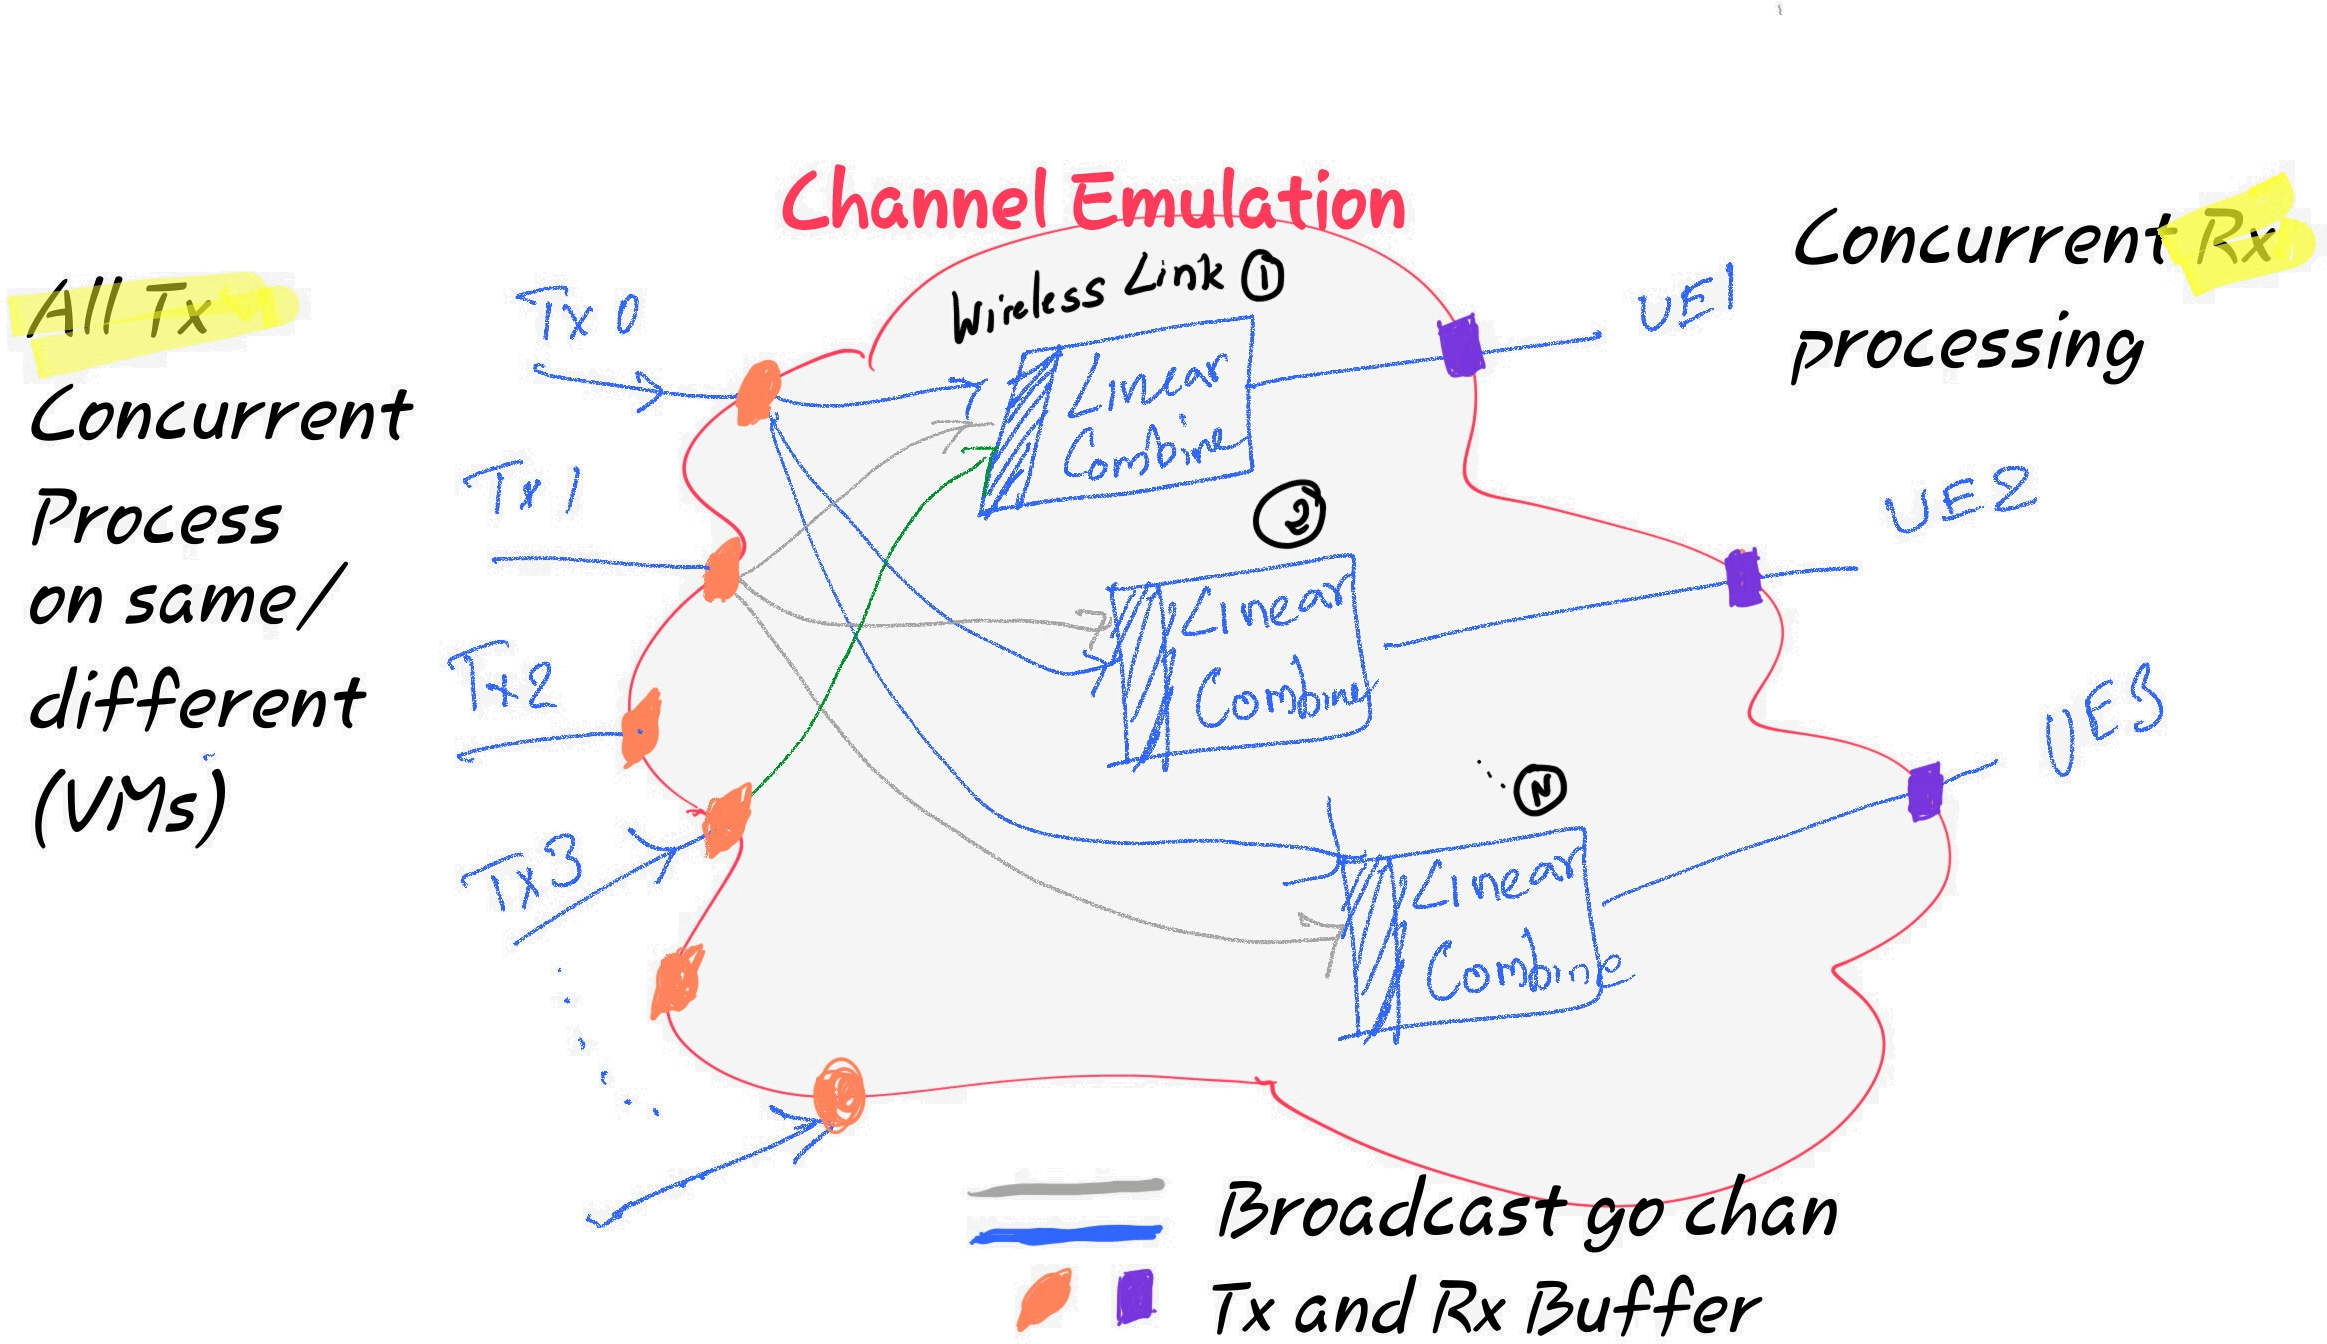 Channel Emulation
All Tx
Concurrent
Process
on same/
different
(VMs)
Tx 0
Tx 1
Tx2
Tx3
Wireless Link 1
Linear
Combine
2
Linear
Combine
N
Linear
Combine
UE1
UE2
UE3
Concurrent Rx
processing
Broadcast go chan
Tx and Rx Buffer